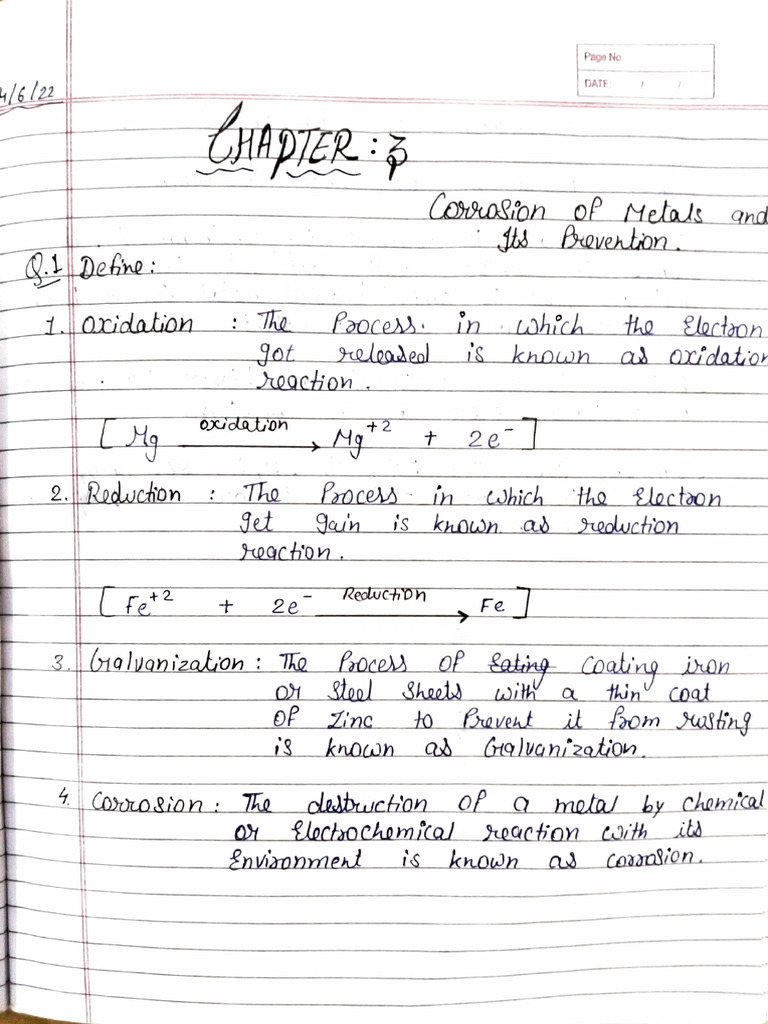 Page No.
DATE: / /
4/6/22
CHAPTER : 3
Corrosion of Metals and
Its Prevention.
Q.1 Define :
1. Oxidation : The Process in which the Electron
got released is known as oxidation
reaction.
[ Mg oxidation → Mg+2 + 2e- ]
2. Reduction : The Process in which the Electron
get gain is known as reduction
reaction.
[ Fe+2 + 2e- Reduction → Fe ]
3. Galvanization : The Process of Eating coating iron
or Steel Sheets with a thin coat
of Zinc to Prevent it from rusting
is known as Galvanization.
4. Corrosion : The destruction of a metal by chemical
or Electrochemical reaction with its
Environment is known as corrosion.